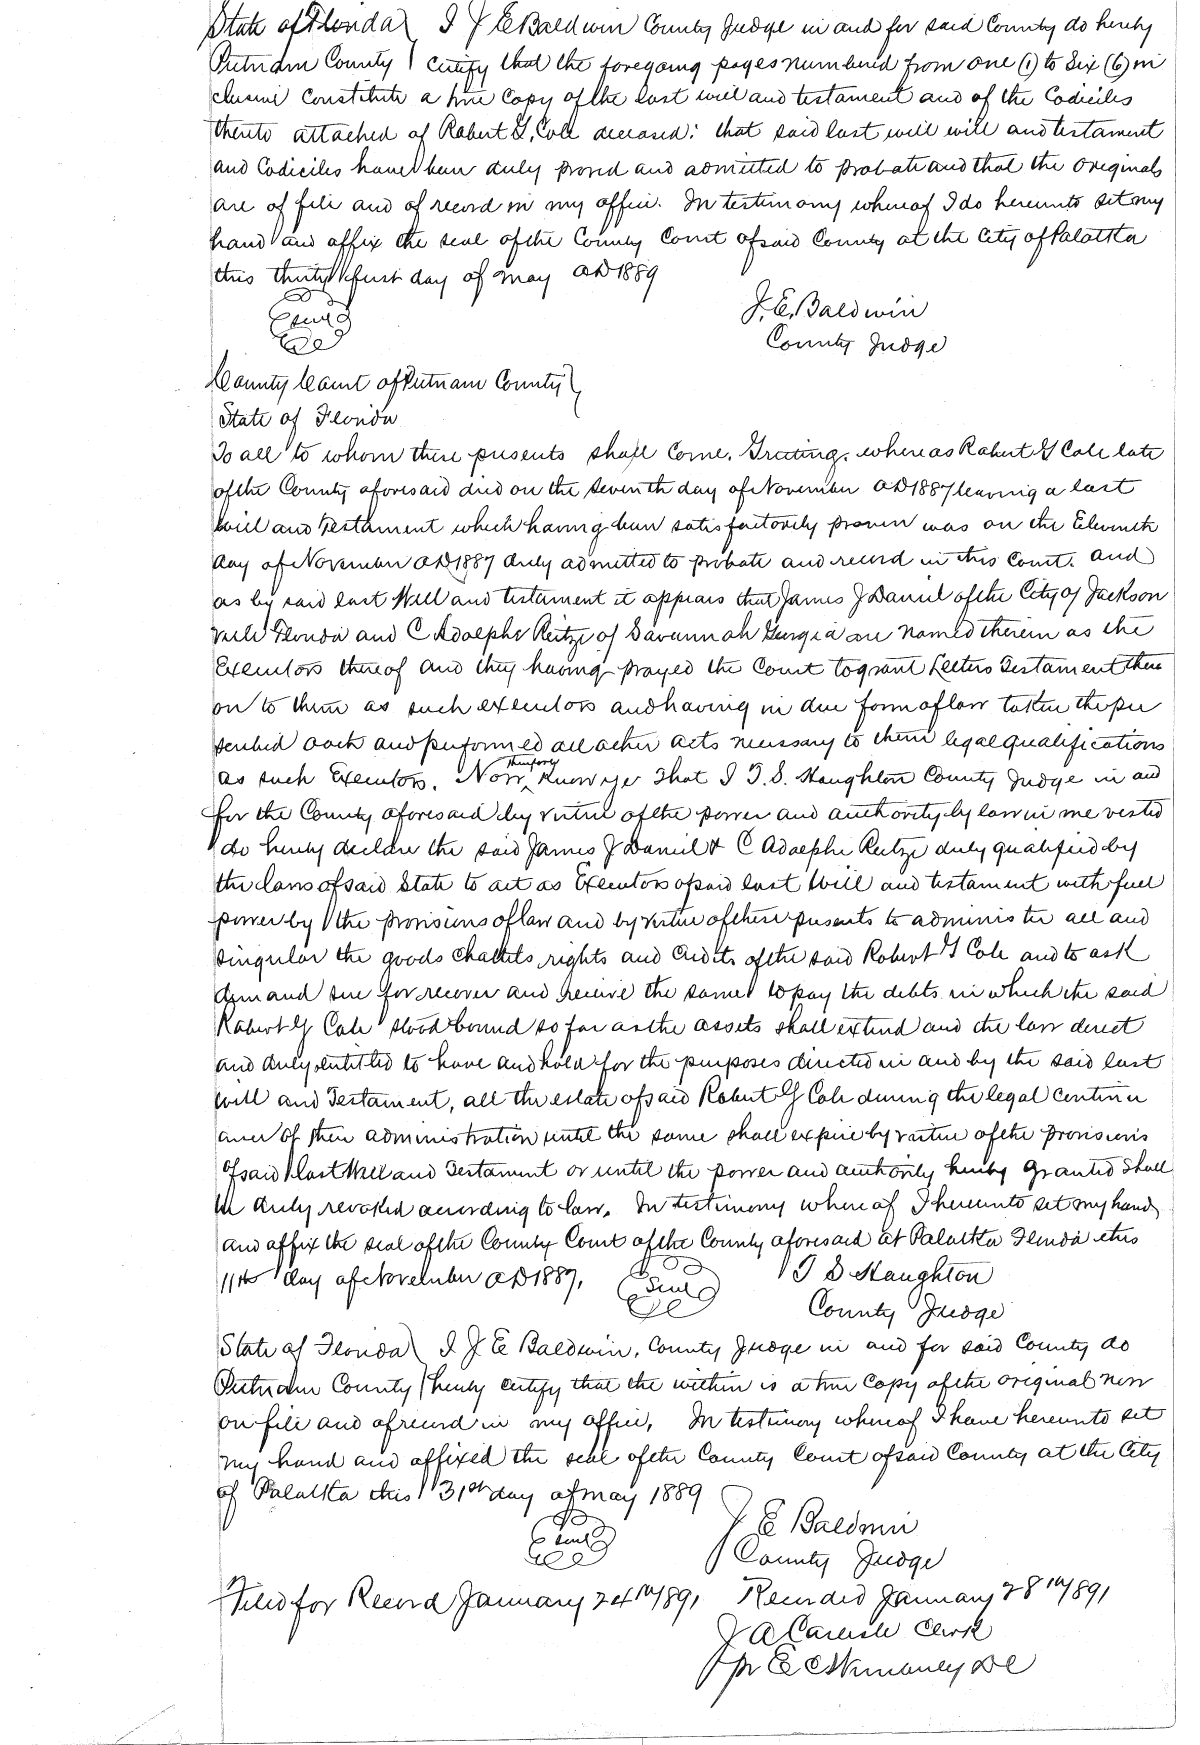 State of Florida } I J E Baldwin County Judge in and for said County do hereby
Putnam County } certify that the foregoing pages numbered from one (1) to Six (6) in
clusive constitute a true copy of the last will and testament and of the Codiciles
thereto attached of Robert G. Cole deceased: that said last will will and testament
and Codiciles have been duly proved and admitted to probate and that the originals
are of file and of record in my office. In testimony whereof I do hereunto set my
hand and affix the seal of the County Court of said County at the City of Palatka
this thirty first day of May AD 1889
Seal
J. E. Baldwin
County Judge
County Court of Putnam County }
State of Florida
To all to whom these presents shall Come. Greeting. whereas Robert G Cole late
of the County aforesaid died on the seventh day of November AD 1887 leaving a last
will and Testament which having been satisfactorily proven was on the Eleventh
day of November AD 1887 duly admitted to probate and record in this Court. and
as by said last Will and testament it appears that James J Daniel of the City of Jackson
ville Florida and C Adolphe Reitze of Savannah Georgia are named therein as the
Executors thereof and they having prayed the Court to grant Letters Testament there
on to them as such executors and having in due form of law taken the pre
scribed oath and performed all other acts necessary to their legal qualifications
as such Executors. Now therefore Know ye That I T. S. Haughton County Judge in and
for the County aforesaid by virtue of the power and authority by law in me vested
do hereby declare the said James J Daniel & C Adolphe Reitze duly qualified by
the laws of said State to act as Executors of said last Will and testament with full
power by the provisions of law and by virtue of these presents to administer all and
singular the goods chattels rights and credits of the said Robert G Cole and to ask
demand sue for recover and receive the same to pay the debts in which the said
Robert G Cole stood bound so far as the assets shall extend and the law direct
and duly entitled to have and hold for the purposes directed in and by the said last
will and Testament, all the estate of said Robert G Cole during the legal continu
ance of their administration until the same shall expire by virtue of the provisions
of said last Will and Testament or until the power and authority hereby granted shall
be duly revoked according to law. In testimony where of I hereunto set my hand
and affix the seal of the County Court of the County aforesaid at Palatka Florida this
11th day of November AD 1887.
Seal
T S Haughton
County Judge
State of Florida } I J E Baldwin, County Judge in and for said County do
Putnam County } hereby certify that the within is a true copy of the original now
on file and of record in my office, In testimony whereof I have hereunto set
my hand and affixed the seal of the County Court of said County at the City
of Palatka this 31st day of May 1889
Seal
J E Baldwin
County Judge
Filed for Record January 24th 1891 Recorded January 28th 1891
J A Carlisle Clerk
pr E C DC